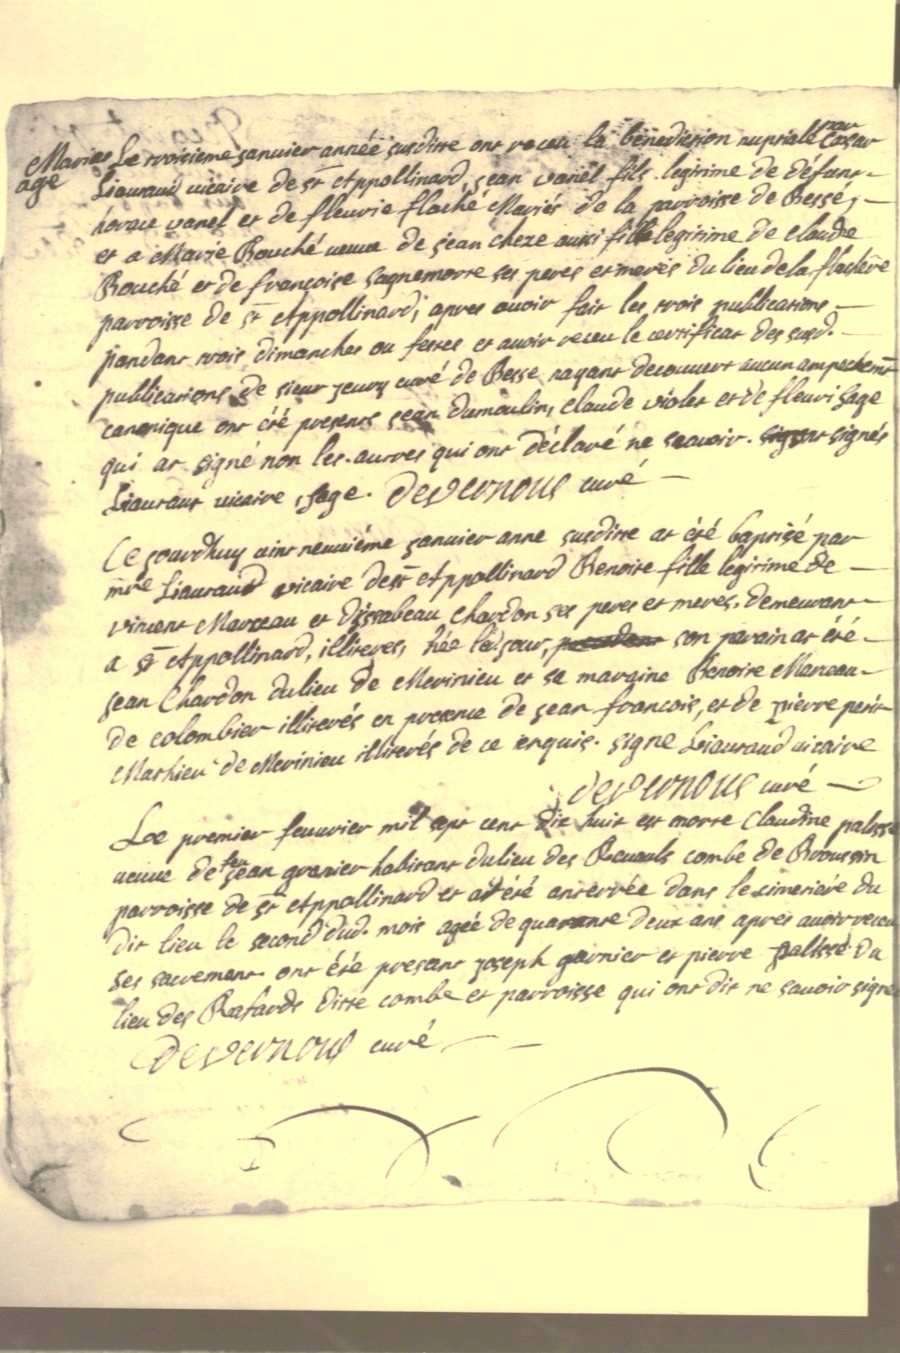 Mariage
Le troisieme janvier année susditte ont receu la bénédiction nuptialle par Cæsar
Liauraud vicaire de st Appollinard, jean vanel fils legitime de défunt
horace vanel et de fleurie flaché Mariés de la parroisse de Bessé,
et a Marie Bouché veuve de jean cheze aussi fille legitime de claude
Bouché et de françoise sagnemorre ses peres et meres du lieu de la flachere
parroisse de st Appollinard, apres avoir fait les trois publications
pandant trois dimanches ou festes et avoir receu le certificat des susd.
publications de sieur curé de Besse nayant decouvert aucun ampechemt
canonique ont été presents jean dumoulin, claude violet et de fleuri sage
qui at signé non les autres qui ont déclaré ne scavoir signés
Liauraut vicaire, sage. devernoux curé
Ce jourdhuy vint neuviéme janvier anne susditte at été baptisé par
mre Liauraud vicaire de st Appollinard Benoite fille legitime de
vincent Marceau et dissabeau chardon ses peres et meres. demeurant
a st Appollinard, illiteres, née led. jour, son parain at été
jean Chardon du lieu de Merinieu et sa maraine Benoite Marceau
de colombier illiterés en presence de jean francois, et de pierre petit
Mathieu de Merinieu illiterés de ce enquis. signe Liauraud vicaire
devernoux curé
Le premier feuvrier mil sept cent dix huit est morte Claudine palisse
veuve de feu jean granier habitant du lieu des combe de Broussin
parroisse de st Appollinard et at été anterrée dans le cimetiére du
dit lieu le second dud. mois agée de quarante deux ans apres avoir receu
ses sacrement. ont été presant joseph garnier et pierre palisse du
lieu des Rafards ditte combe et parroisse qui ont dit ne savoir signe
devernoux curé